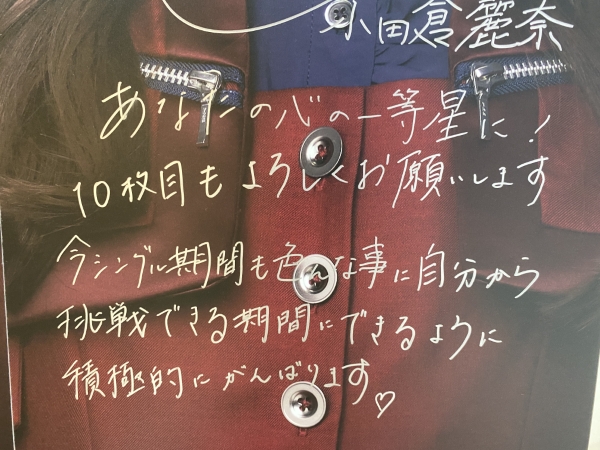 小田倉麗奈
あなたの心の一等星に!
10枚目もよろしくお願いします
今シングル期間も色んな事に自分から
挑戦できる期間にできるように
積極的にがんばります♡